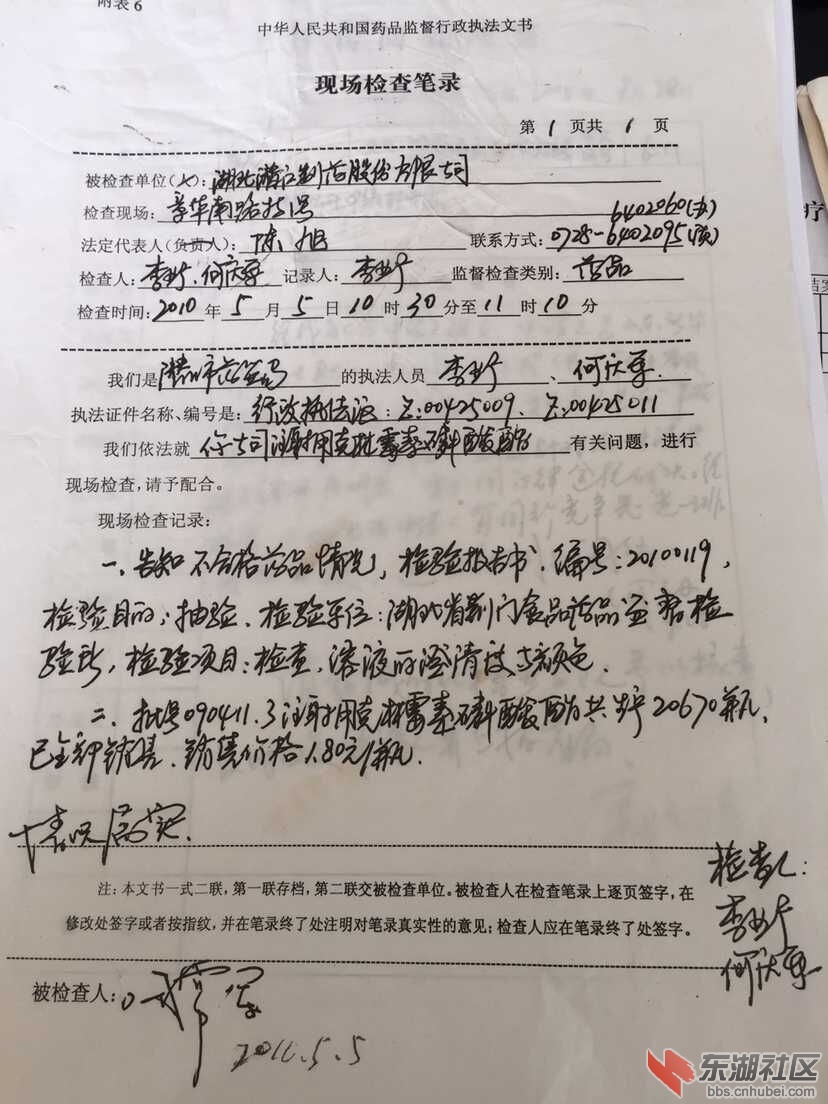 附表6
中华人民共和国药品监督行政执法文书
现场检查笔录
第 1 页共 1 页
被检查单位(人)：湖北潜江制药股份有限公司
检查现场：章华南路特1号 6402060(办)
法定代表人(负责人)：陈旭 联系方式：0728-6402095(质)
检查人：李 、何庆军 记录人：李 监督检查类别：药品
检查时间：2010 年 5 月 5 日 10 时 30 分至 11 时 10 分
我们是 潜江市药监局 的执法人员 李 、何庆军.
执法证件名称、编号是：行政执法证：Z.00425009、Z.00425011
我们依法就 你公司注射用克林霉素磷酸酯 有关问题，进行
现场检查，请予配合。
现场检查记录：
一、告知不合格药品情况，检验报告书.编号：20100119，
检验目的：抽验、检验单位：湖北省荆门食品药品监督检
验所，检验项目：检查，溶液的澄清度与颜色.
二、批号090411.3注射用克林霉素磷酸酯共生产20670瓶、
已全部销售、销售价格1.80元/瓶.
情况属实.
检查人：
李
何庆军
注：本文书一式二联，第一联存档，第二联交被检查单位。被检查人在检查笔录上逐页签字，在
修改处签字或者按指纹，并在笔录终了处注明对笔录真实性的意见；检查人应在笔录终了处签字。
被检查人：
2010.5.5
疗
东湖社区
bbs.cnhubei.com